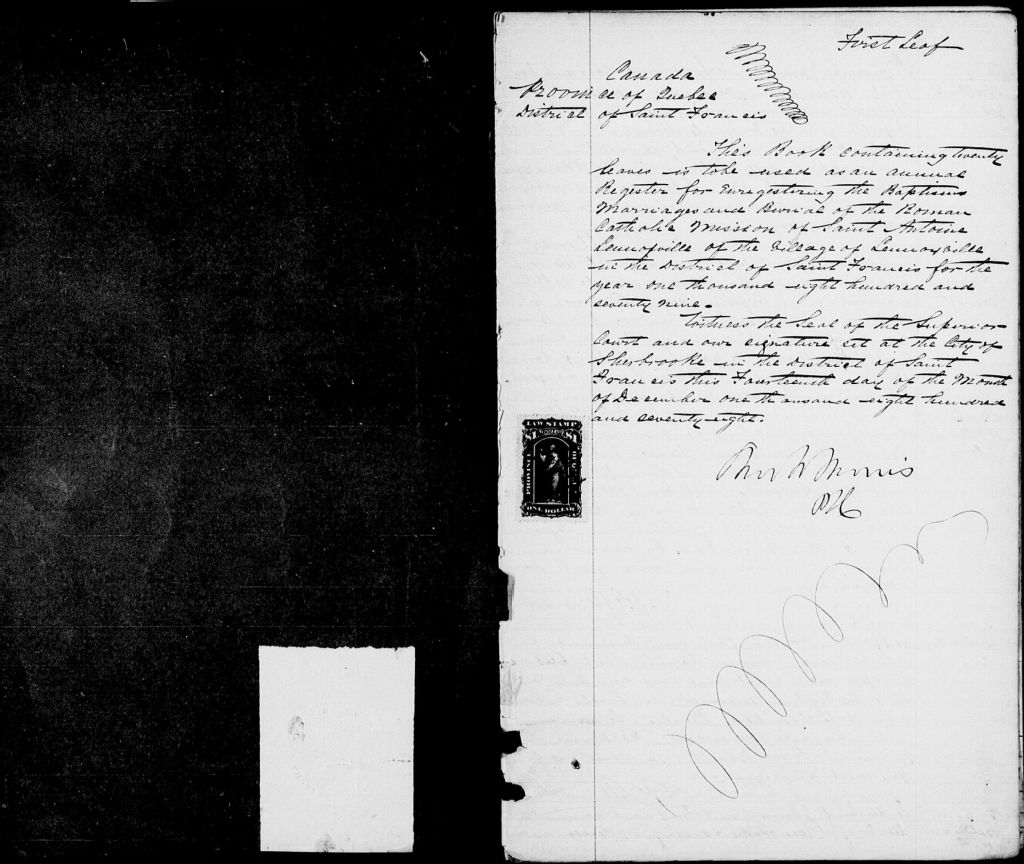 First Leaf
Canada
Province of Quebec
District of Saint Francis
This Book containing twenty
leaves is to be used as an annual
Register for Enregestering the Baptisms
Marriages and Burial of the Roman
Catholic Mission of Saint Antoine
Lennoxville of the Village of Lennoxville
in the District of Saint Francis for the
year one thousand eight hundred and
seventy nine.
Witness the Seal of the Superior
Court and our signature set at the City of
Sherbrooke in the District of Saint
Francis this Fourteenth day of the Month
of December one thousand eight hundred
and seventy eight.
LAW STAMP
$1 $1
PROVINCE
ONE DOLLAR
Morris